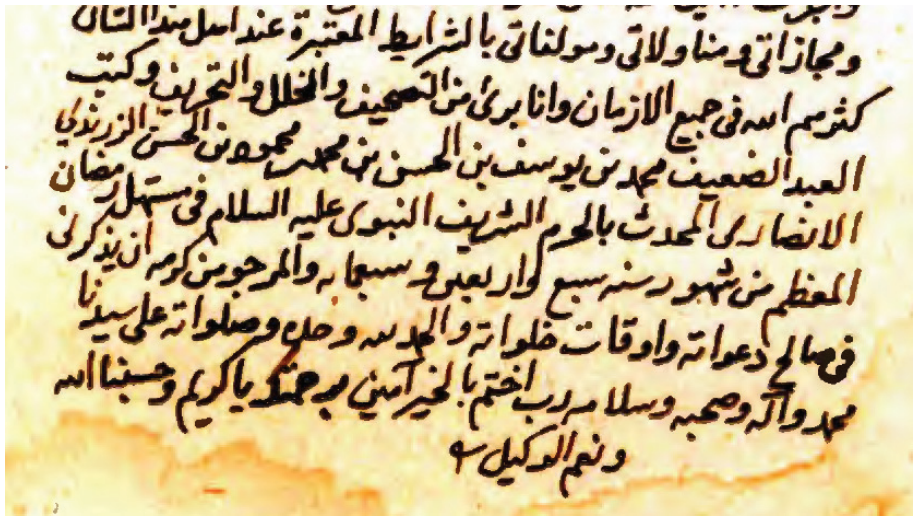 ومجازاتى ومناولاتى ومولفاتى بالشرايط المعتبرة عند اهل هذا الشان
كثرهم الله فى جميع الازمان وانا برئ من التصحيف والخلل والتحريف وكتب
العبد الضعيف محمد بن يوسف بن الحسن بن محمد بن محمود بن الحسن الزرندي
الانصارى المحدث بالحرم الشريف النبوى عليه السلام فى مستهل رمضان
المعظم من شهور سنه سبع واربعين وسبعمايه والمرجو من كرمه ان يذكرنى
فى صالح دعواته واوقات خلواته والحمد لله وحده وصلواته على سيدنا
محمد وآله وصحبه وسلامه رب اختم بالخير آمين برحمتك يا كريم وحسبنا الله
ونعم الوكيل